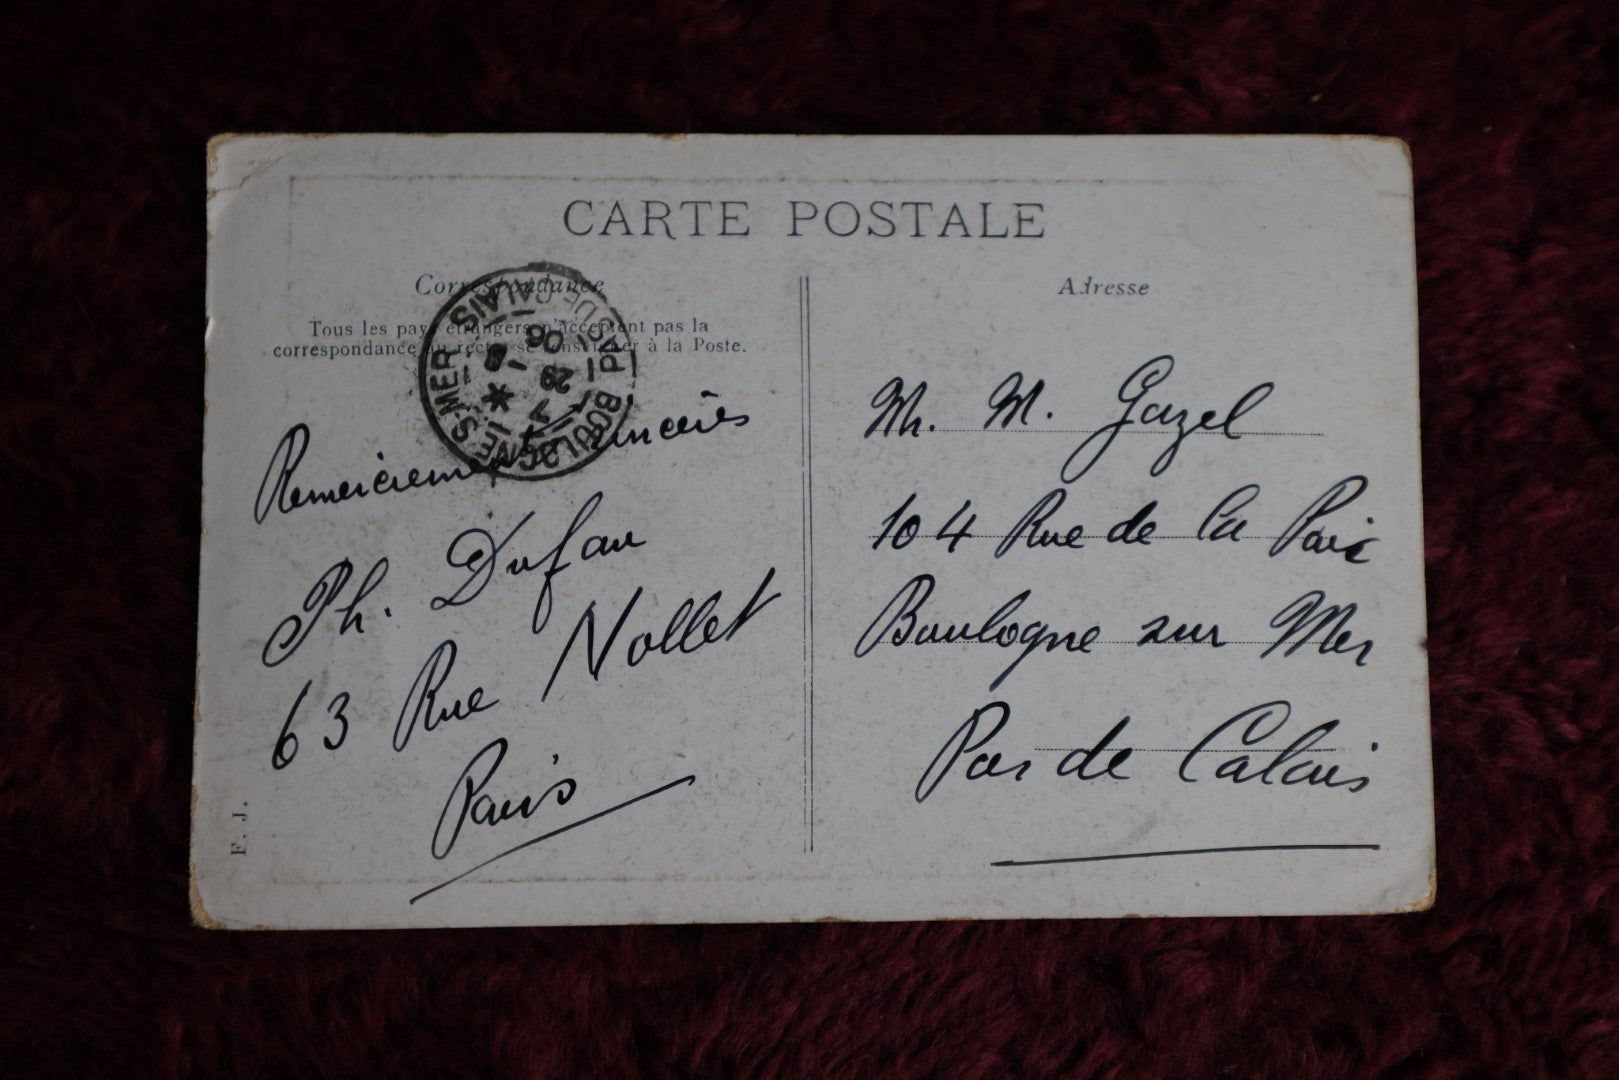 CARTE POSTALE
Correspondance
Tous les pays étrangers n'acceptent pas la
correspondance au recto, se renseigner à la Poste.
Remerciements sincères
Ph. Dufau
63 Rue Nollet
Paris
Adresse
Mr. M. Gazel
104 Rue de la Paix
Boulogne sur Mer
Pas de Calais
BOULOGNE-S-MER
PAS-DE-CALAIS
29 -1
06
F. J.